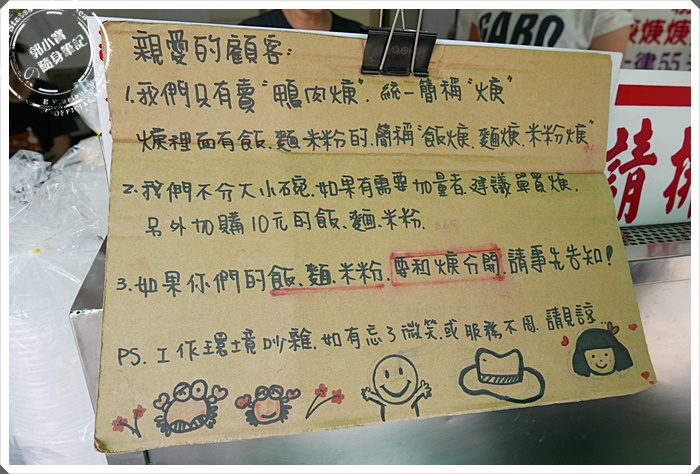 郭小寶
隨身筆記
GABO
親愛的顧客:
1.我們只有賣"鴨肉焿".統一簡稱"焿"
焿裡面有飯、麵、米粉的.簡稱"飯焿、麵焿、米粉焿"
2.我們不分大小碗.如果有需要加量者.建議單買焿.
另外加購10元的飯、麵、米粉.
3.如果你們的飯、麵、米粉.要和焿分開.請事先告知!
PS.工作環境吵雜.如有忘了微笑.或服務不周.請見諒...
一律55
請排